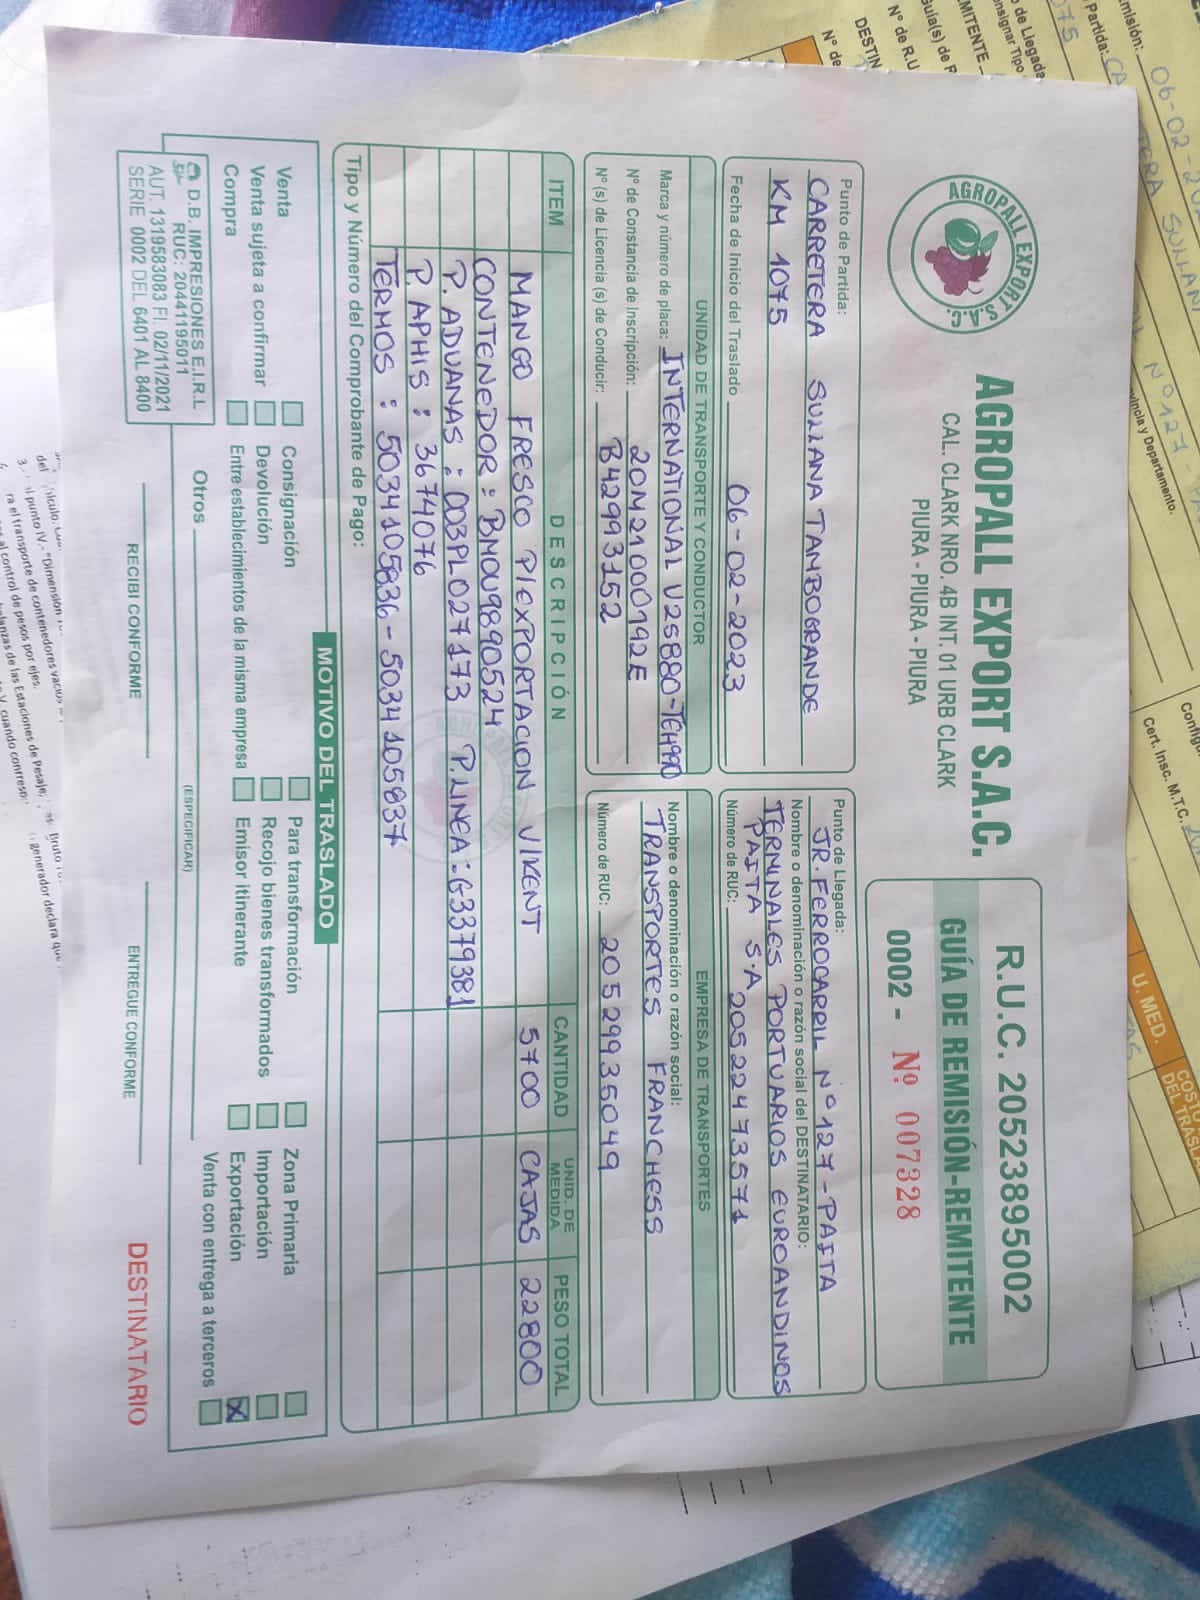 AGROPALL EXPORT S.A.C.
AGROPALL EXPORT S.A.C.
CAL. CLARK NRO. 4B INT. 01 URB CLARK
PIURA - PIURA - PIURA
R.U.C. 20523895002
GUÍA DE REMISIÓN-REMITENTE
0002 - Nº 007328
Punto de Partida:
CARRETERA SULLANA TAMBOGRANDE
KM 1075
Fecha de Inicio del Traslado 06-02-2023
Punto de Llegada:
JR. FERROCARRIL Nº 127 - PAITA
Nombre o denominación o razón social del DESTINATARIO:
TERMINALES PORTUARIOS EUROANDINOS
PAITA S.A
Número de RUC: 20522473571
UNIDAD DE TRANSPORTE Y CONDUCTOR
Marca y número de placa: INTERNATIONAL V2S880-TCH990
Nº de Constancia de Inscripción: 20M21000192E
Nº (s) de Licencia (s) de Conducir: B42993152
EMPRESA DE TRANSPORTES
Nombre o denominación o razón social:
TRANSPORTES FRANCHESS
Número de RUC: 20529935049
ITEM DESCRIPCIÓN CANTIDAD UNID. DE MEDIDA PESO TOTAL
MANGO FRESCO P/EXPORTACION VIKENT 5700 CAJAS 22800
CONTENEDOR: BMOU9890524
P. ADUANAS: 003PL027173 P.LINEA: G3379381
P. APHIS: 3674076
TERMOS: 5034105836-5034105837
Tipo y Número del Comprobante de Pago:
MOTIVO DEL TRASLADO
Venta Consignación Para transformación Zona Primaria
Venta sujeta a confirmar Devolución Recojo bienes transformados Importación
Compra Entre establecimientos de la misma empresa Emisor itinerante Exportación X
Otros (ESPECIFICAR) Venta con entrega a terceros
D.B. IMPRESIONES E.I.R.L
RUC: 20441195011
AUT. 1319583083 FI. 02/11/2021
SERIE 0002 DEL 6401 AL 8400
RECIBI CONFORME
ENTREGUE CONFORME
DESTINATARIO
06-02-2
Nº 127
Cert. Insc. M.T.C.
U. MED.
Nº de R.U
DESTIN